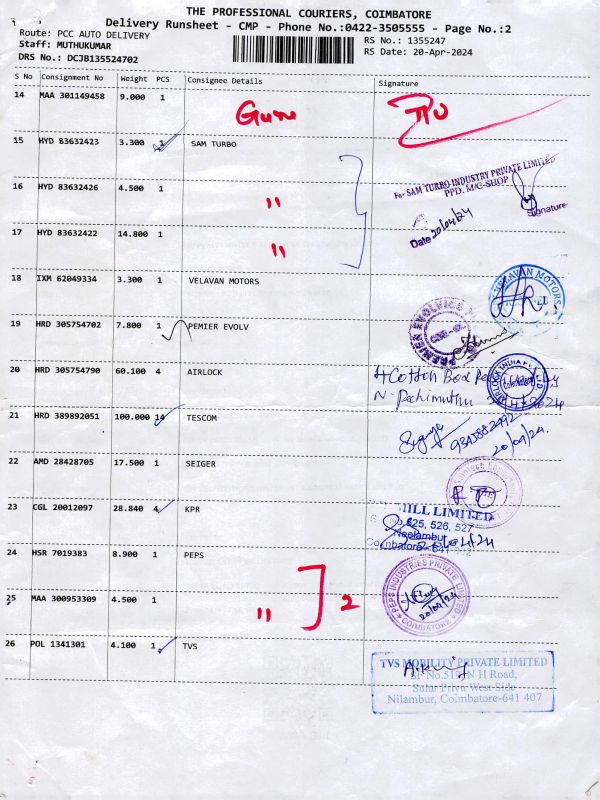 THE PROFESSIONAL COURIERS, COIMBATORE
Delivery Runsheet - CMP - Phone No.:0422-3505555 - Page No.:2
Route: PCC AUTO DELIVERY
RS No.: 1355247
Staff: MUTHUKUMAR
RS Date: 20-Apr-2024
DRS No.: DCJB135524702
S No Consignment No Weight PCS Consignee Details Signature
14 MAA 301149458 9.000 1
15 HYD 83632423 3.300 SAM TURBO
For SAM TURBO INDUSTRY PRIVATE LIMITED
PPD. M/C-SHOP
16 HYD 83632426 4.500 1 "
Signature
Date 20/04/24
17 HYD 83632422 14.800 1 "
18 IXM 62049334 3.300 1 VELAVAN MOTORS
VELAVAN MOTORS
19 HRD 305754702 7.800 1 PEMIER EVOLV
PREMIER EVOLVICS
20 HRD 305754790 60.100 4 AIRLOCK
4 Cotton Box
AIRLOCK INDIA PVT LTD
21 HRD 389892051 100.000 14 TESCOM
20/04/24.
22 AMD 28428705 17.500 1 SEIGER
23 CGL 20012097 28.840 4 KPR
MILL LIMITED
525, 526, 527
Neelambur
Coimbatore
24 HSR 7019383 8.900 1 PEPS
PEPS INDUSTRIES PRIVATE LIMITED
20/04/24
COIMBATORE
25 MAA 300953309 4.500 1 " 2
26 POL 1341301 4.100 1 TVS
TVS MOBILITY PRIVATE LIMITED
N H Road,
West Side
Nilambur, Coimbatore-641 407